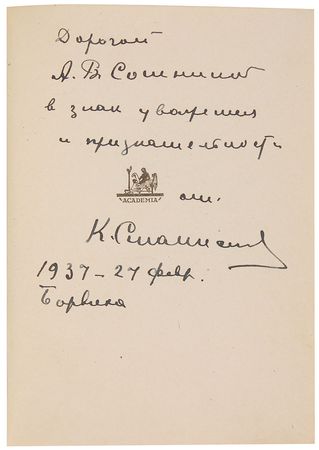 Дорогой
А. В. Сошниной
в знак уважения
и признательности
ACADEMIA
от
К. Станиславский
1937 – 27 февр.
Барвиха